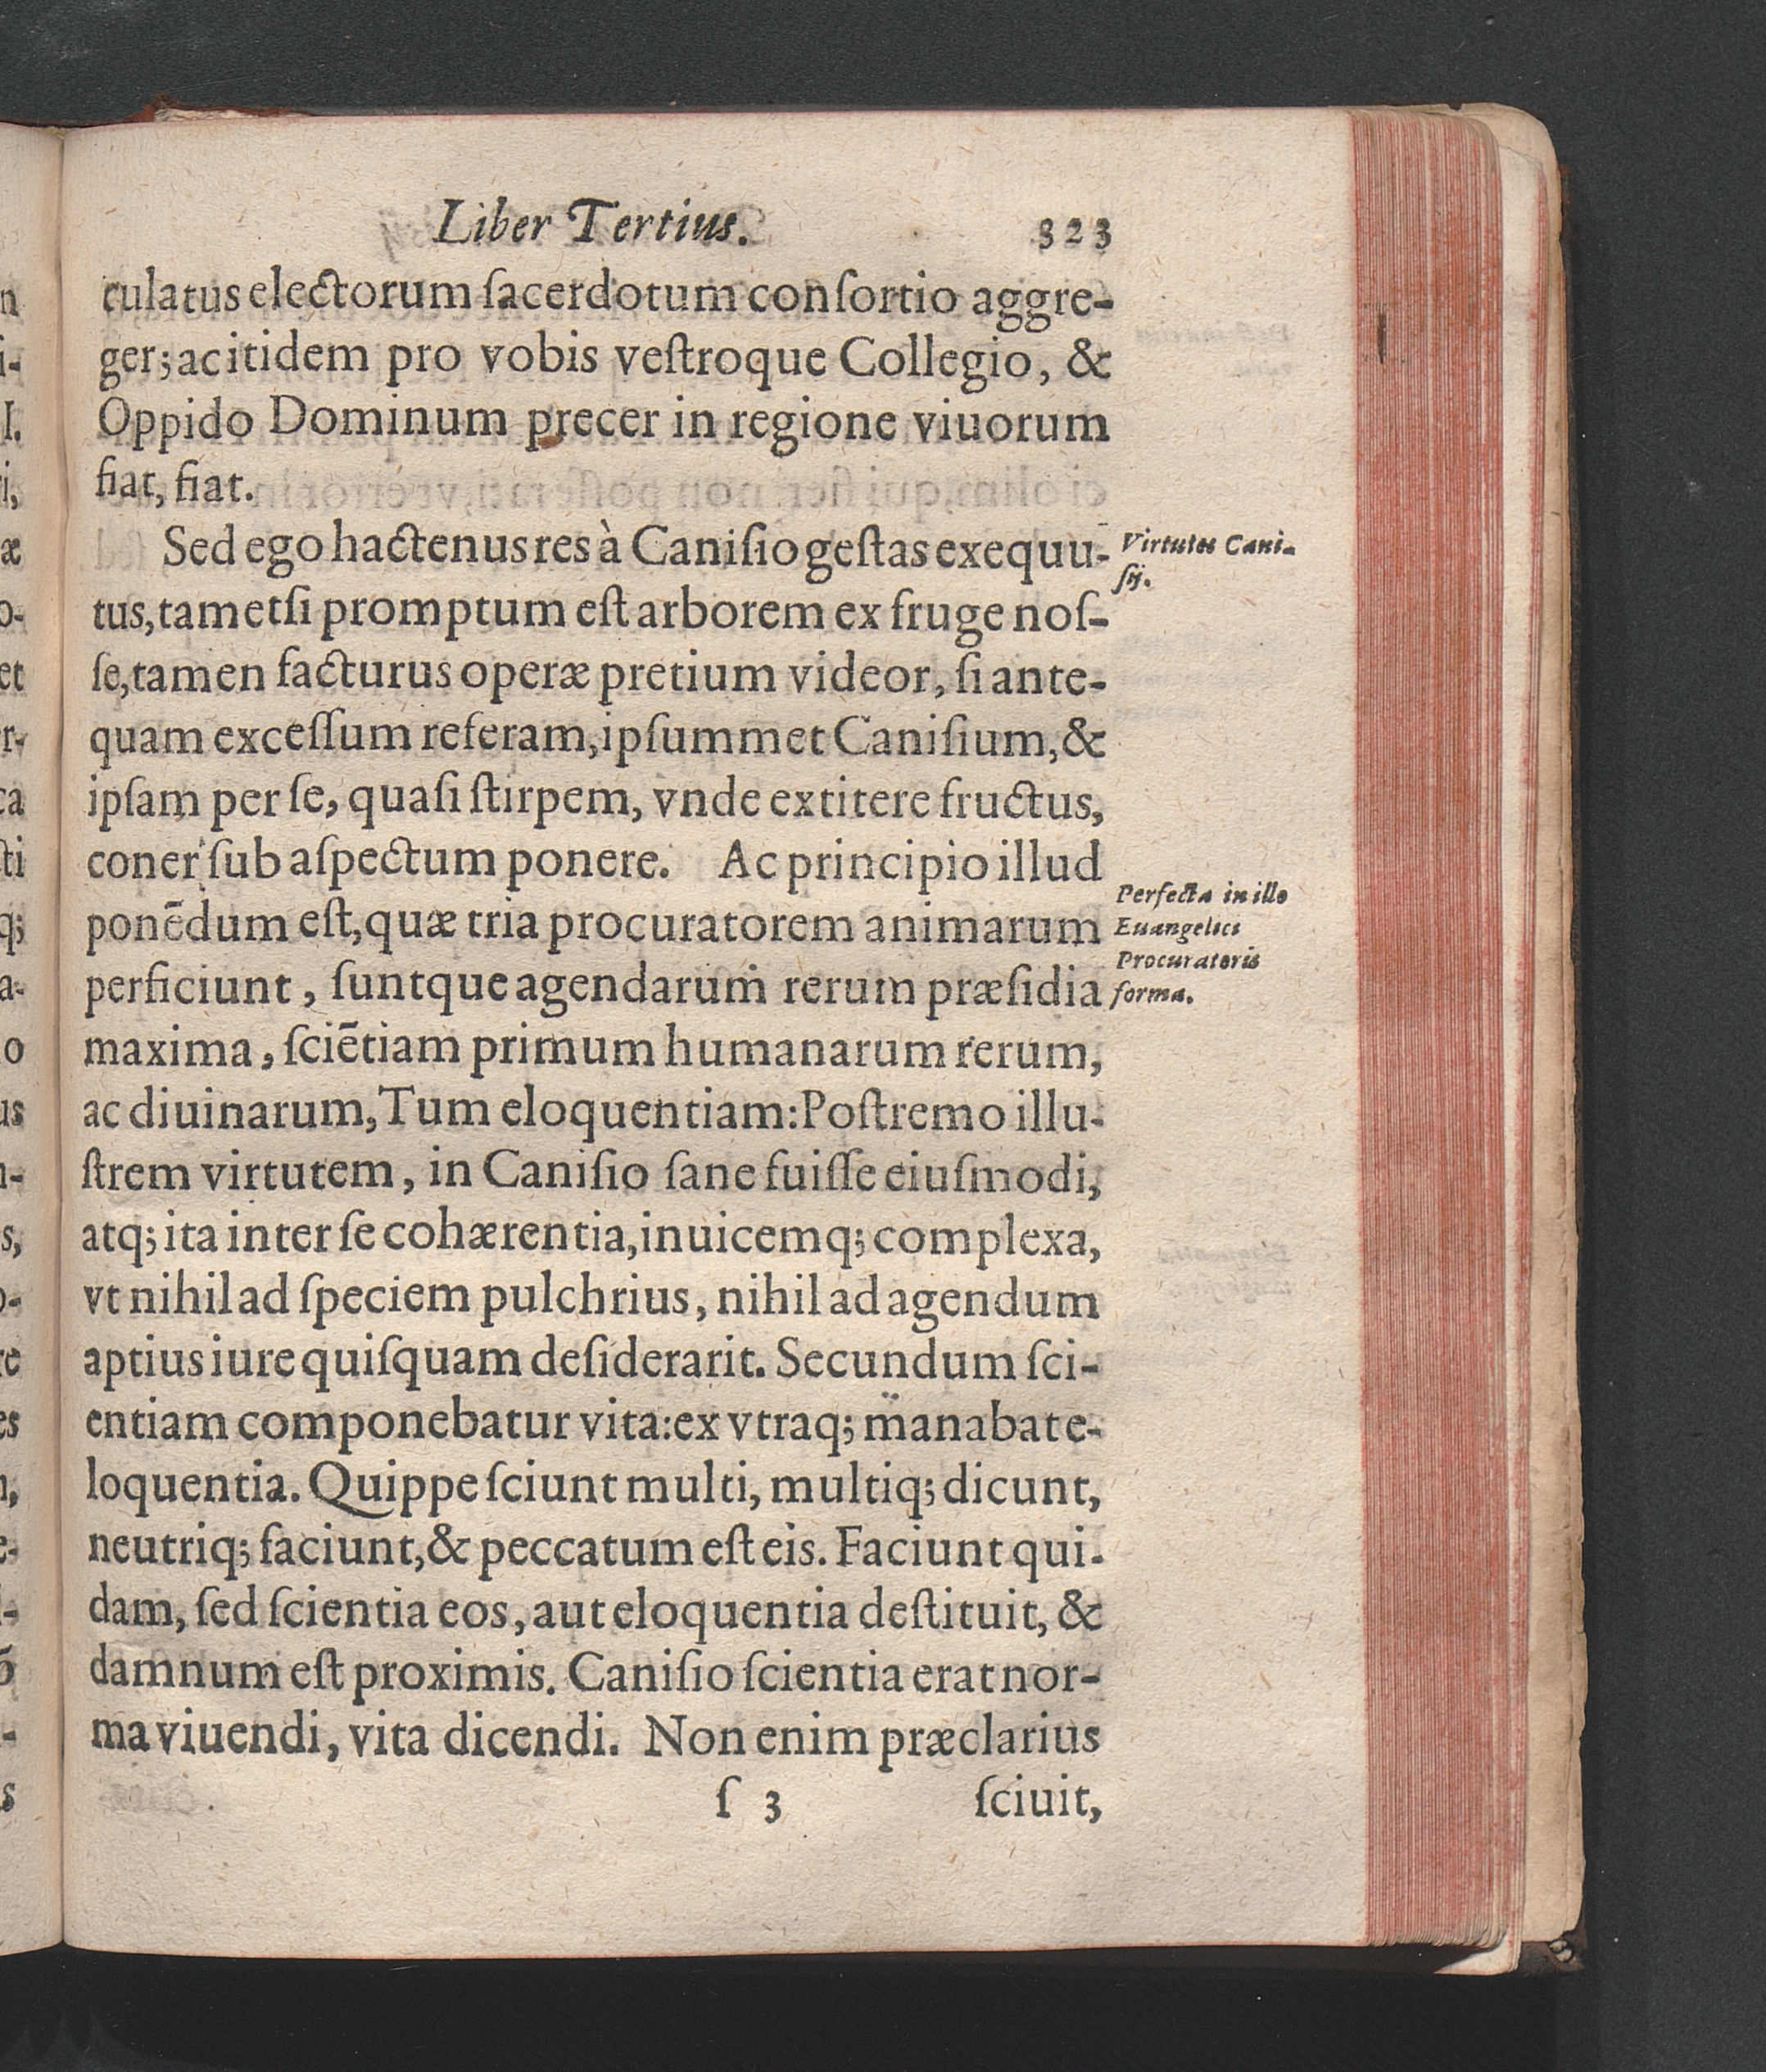 Liber Tertius. 323
culatus electorum ſacerdotum conſortio aggre-
ger; ac itidem pro vobis veſtroque Collegio, &
Oppido Dominum precer in regione viuorum
fiat, fiat.
Sed ego hactenus res à Caniſio geſtas exequu-
tus, tametſi promptum eſt arborem ex fruge noſ-
ſe, tamen facturus operæ pretium videor, ſi ante-
quam exceſſum referam, ipſummet Caniſium, &
ipſam per ſe, quaſi ſtirpem, vnde extitere fructus,
coner ſub aſpectum ponere. Ac principio illud
ponēdum eſt, quæ tria procuratorem animarum
perficiunt, ſuntque agendarum rerum præſidia
maxima, ſciētiam primum humanarum rerum,
ac diuinarum, Tum eloquentiam: Poſtremo illu-
ſtrem virtutem, in Caniſio ſane fuiſſe eiuſmodi,
atq; ita inter ſe cohærentia, inuicemq; complexa,
vt nihil ad ſpeciem pulchrius, nihil ad agendum
aptius iure quiſquam deſiderarit. Secundum ſci-
entiam componebatur vita: ex vtraq; manabat e-
loquentia. Quippe ſciunt multi, multiq; dicunt,
neutriq; faciunt, & peccatum eſt eis. Faciunt qui-
dam, ſed ſcientia eos, aut eloquentia deſtituit, &
damnum eſt proximis. Caniſio ſcientia erat nor-
ma viuendi, vita dicendi. Non enim præclarius
ſ 3 ſciuit,
Virtutes Cani-
ſij.
Perfecta in illo
Euangelici
Procuratoris
forma.